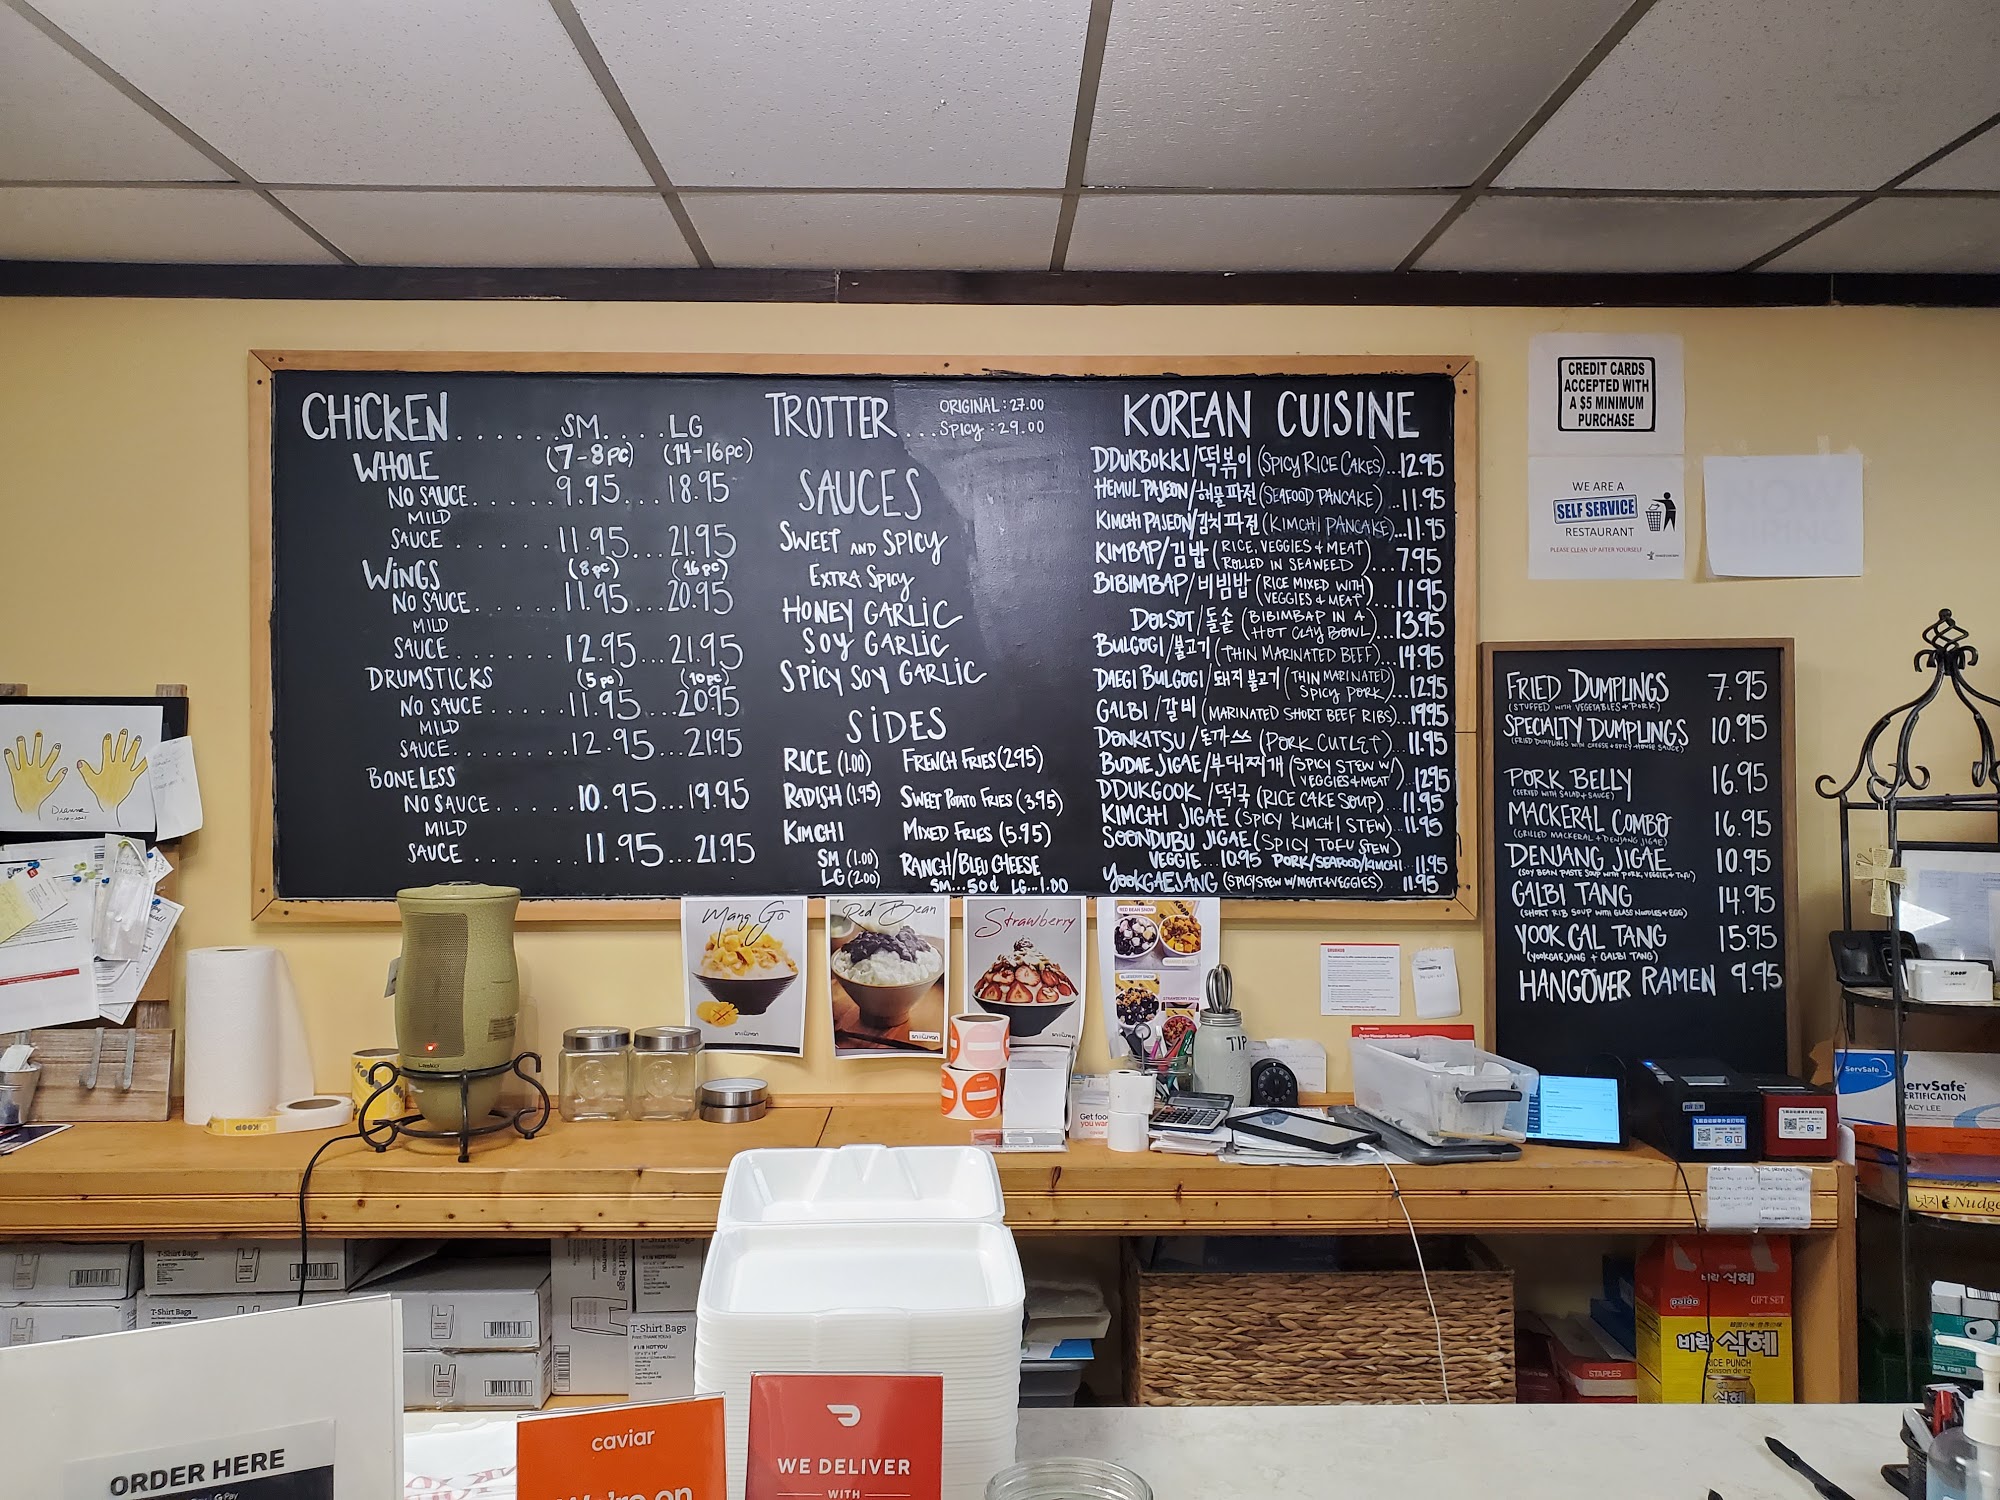 CHICKEN . . . . . . SM. . . . LG
(7-8pc) (14-16pc)
WHOLE
NO SAUCE . . . . . 9.95 . . . 18.95
MILD
SAUCE . . . . . . 11.95 . . . 21.95
WINGS (8pc) (16pc)
NO SAUCE . . . . . 11.95 . . . 20.95
MILD
SAUCE . . . . . . 12.95 . . . 21.95
DRUMSTICKS (5pc) (10pc)
NO SAUCE . . . . . 11.95 . . . 20.95
MILD
SAUCE . . . . . . 12.95 . . . 21.95
BONELESS
NO SAUCE . . . . . 10.95 . . . 19.95
MILD
SAUCE . . . . . . 11.95 . . . 21.95
TROTTER . . . ORIGINAL : 27.00
SPICY : 29.00
SAUCES
SWEET AND SPICY
EXTRA SPICY
HONEY GARLIC
SOY GARLIC
SPICY SOY GARLIC
SIDES
RICE (1.00) FRENCH FRIES (2.95)
RADISH (1.95) SWEET POTATO FRIES (3.95)
KIMCHI MIXED FRIES (5.95)
SM (1.00) RANCH/BLEU CHEESE
LG (2.00) SM...50¢ LG...1.00
KOREAN CUISINE
DDUKBOKKI/떡볶이 (SPICY RICE CAKES)...12.95
HEMUL PAJEON/해물파전 (SEAFOOD PANCAKE)...11.95
KIMCHI PAJEON/김치파전 (KIMCHI PANCAKE)...11.95
KIMBAP/김밥 (RICE, VEGGIES + MEAT ROLLED IN SEAWEED)...7.95
BIBIMBAP/비빔밥 (RICE MIXED WITH VEGGIES & MEAT)...11.95
DOLSOT/돌솥 (BIBIMBAP IN A HOT CLAY BOWL)...13.95
BULGOGI/불고기 (THIN MARINATED BEEF)...14.95
DAEGI BULGOGI/돼지불고기 (THIN MARINATED SPICY PORK)...12.95
GALBI/갈비 (MARINATED SHORT BEEF RIBS)...19.95
DONKATSU/돈까쓰 (PORK CUTLET)...11.95
BUDAE JIGAE/부대찌개 (SPICY STEW W/ VEGGIES & MEAT)...12.95
DDUKGOOK/떡국 (RICE CAKE SOUP)...11.95
KIMCHI JIGAE (SPICY KIMCHI STEW)...11.95
SOONDUBU JIGAE (SPICY TOFU STEW)
VEGGIE...10.95 PORK/SEAFOOD/KIMCHI...11.95
YOOKGAEJANG (SPICY STEW W/MEAT & VEGGIES) 11.95
CREDIT CARDS
ACCEPTED WITH
A $5 MINIMUM
PURCHASE
WE ARE A
SELF SERVICE
RESTAURANT
PLEASE CLEAN UP AFTER YOURSELF
FRIED DUMPLINGS 7.95
(STUFFED WITH VEGETABLES & PORK)
SPECIALTY DUMPLINGS 10.95
(FRIED DUMPLINGS WITH CHEESE & SPICY HOUSE SAUCE)
PORK BELLY 16.95
(SERVED WITH SALAD & SAUCE)
MACKERAL COMBO 16.95
(GRILLED MACKERAL + DENJANG JIGAE)
DENJANG JIGAE 10.95
(SOY BEAN PASTE SOUP WITH PORK, VEGGIE, & TOFU)
GALBI TANG 14.95
(SHORT RIB SOUP WITH GLASS NOODLES & EGG)
YOOK GAL TANG 15.95
(YOOKGAEJANG + GALBI TANG)
HANGOVER RAMEN 9.95
Dianna
Mang Go
Red Bean
Strawberry
RED BEAN SNOW
BLUEBERRY SNOW
STRAWBERRY SNOW
TIP
Get food
you want
ServSafe
ServSafe
CERTIFICATION
STACY LEE
넛지 Nudge
T-Shirt Bags
T-Shirt Bags
T-Shirt Bags
T-Shirt Bags
비락 식혜
paldo
GIFT SET
비락 식혜
RICE PUNCH
STAPLES
ORDER HERE
G Pay
caviar
We're on
WE DELIVER
WITH